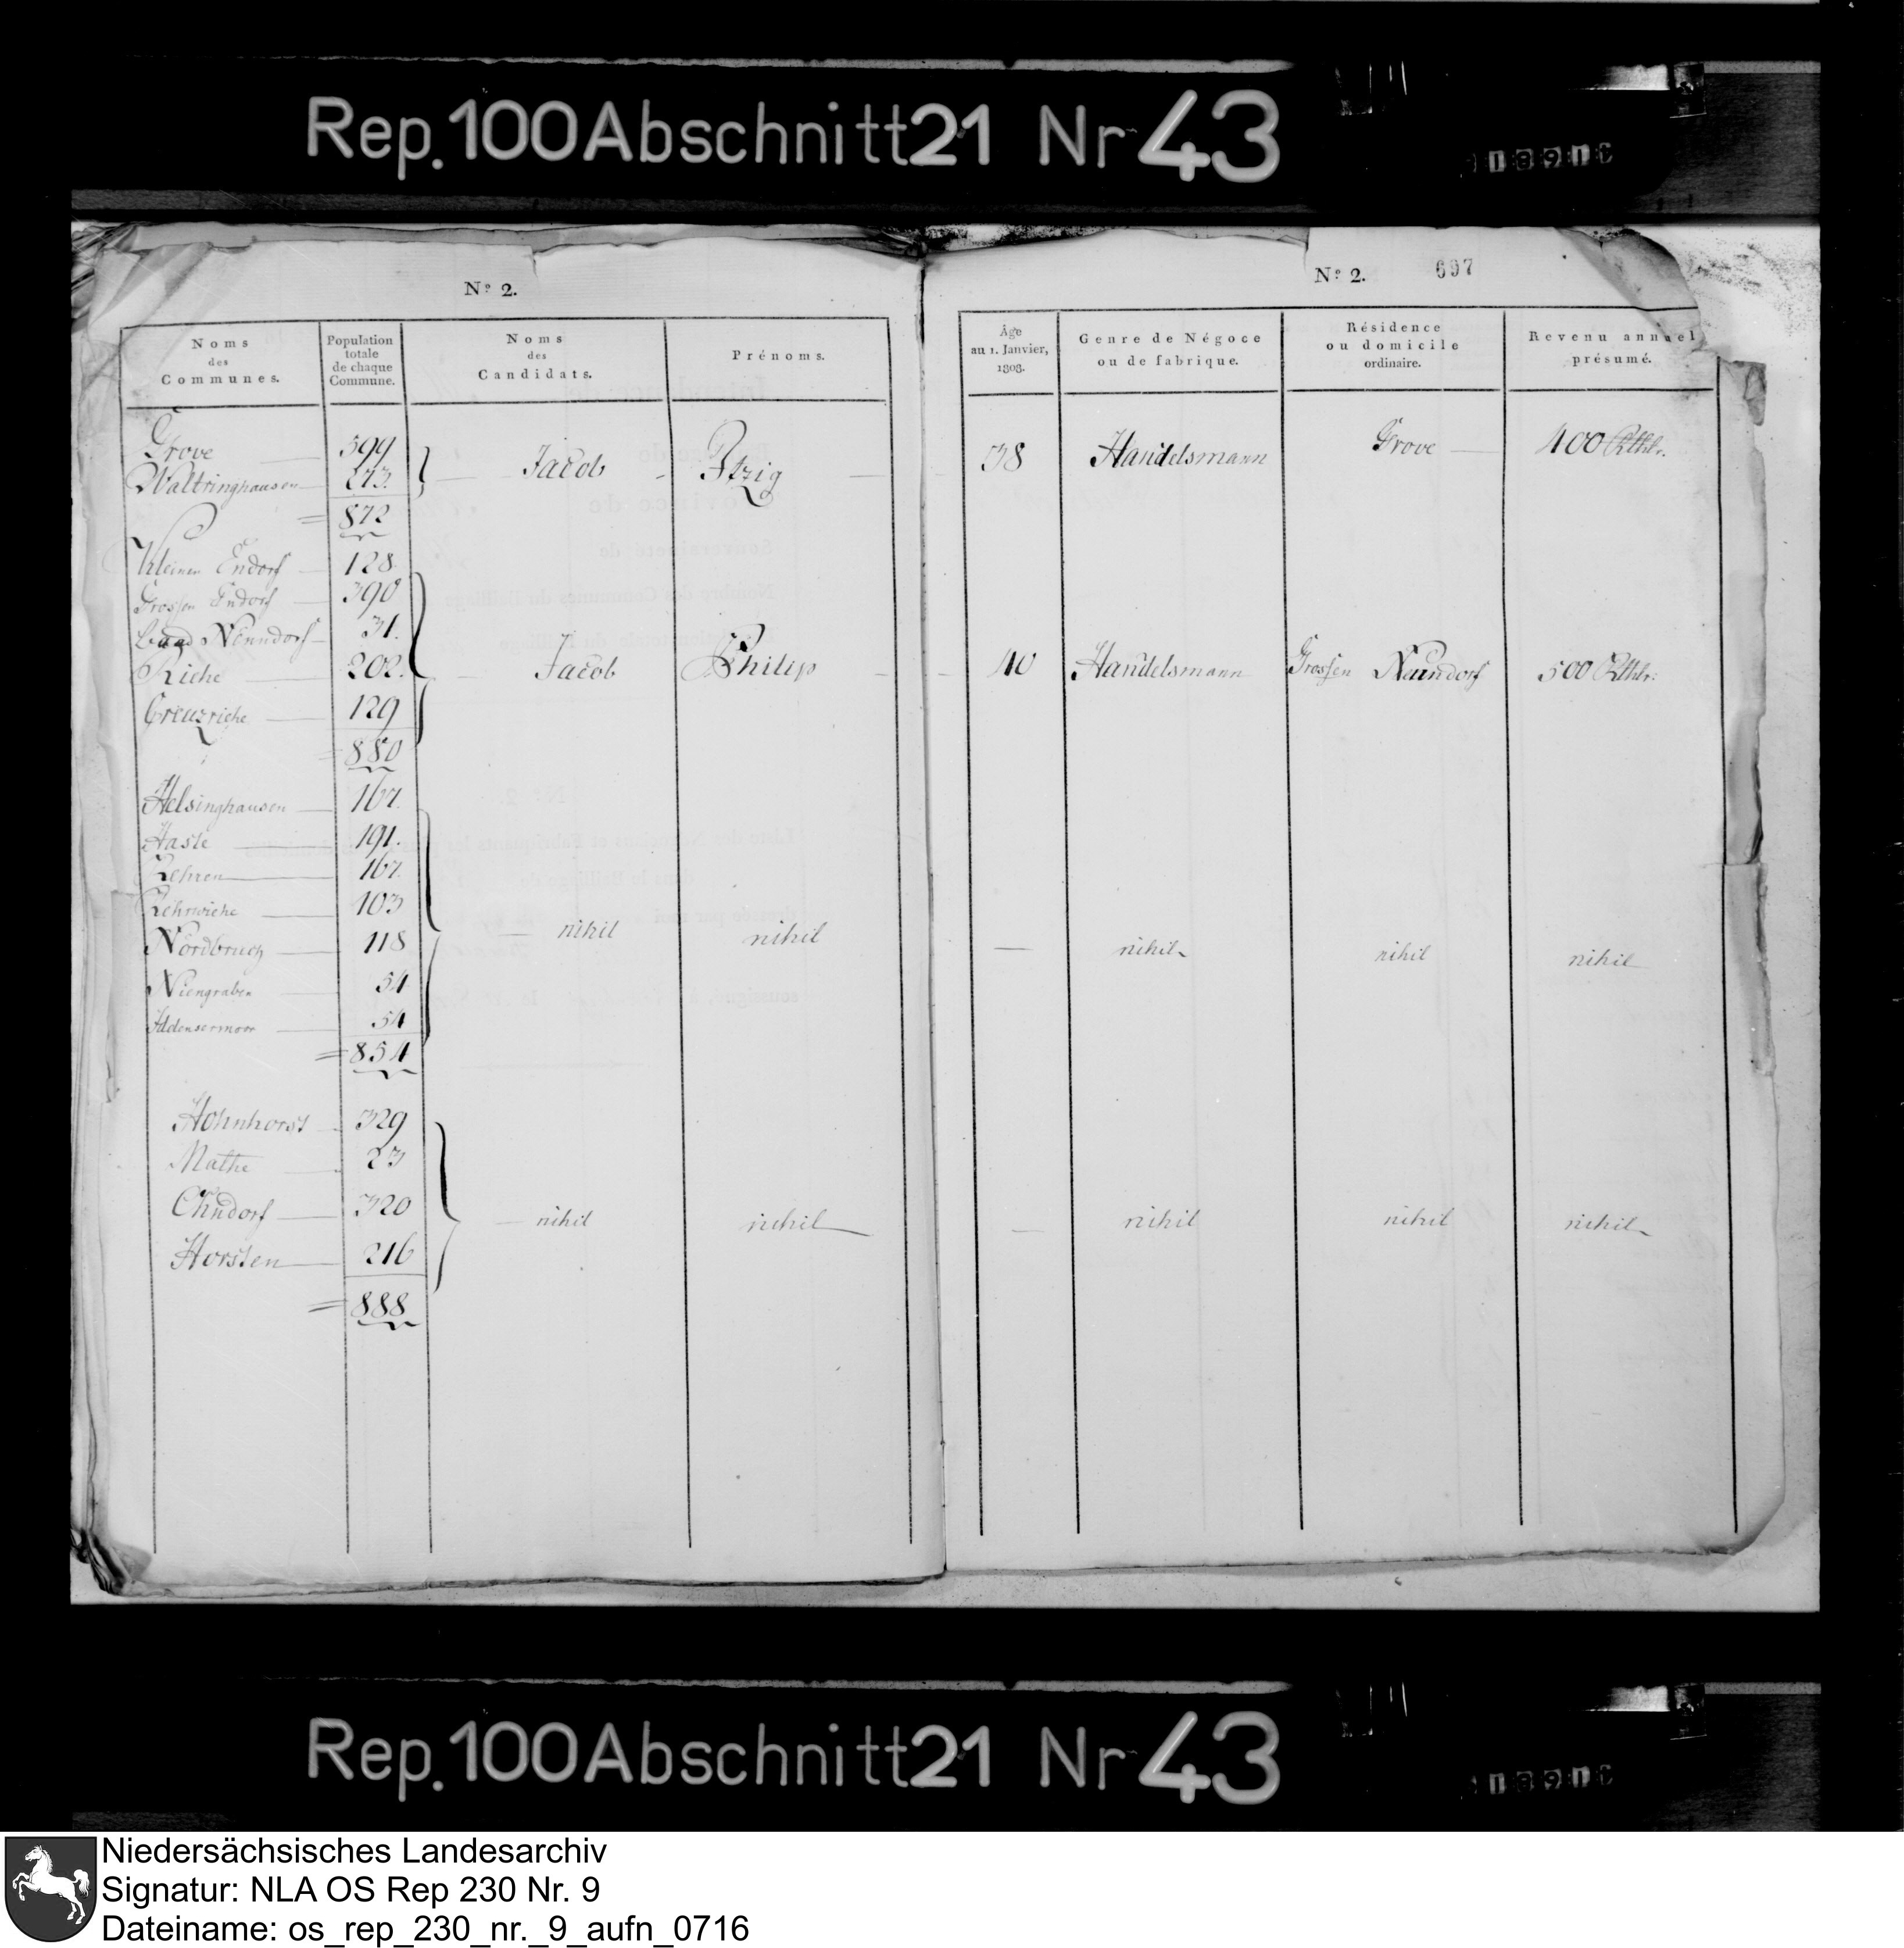 Rep. 100 Abschnitt 21 Nr 43
Nº 2.
Noms des Communes.
Population totale de chaque Commune.
Noms des Candidats.
Prénoms.
Grove 599
Waltringhausen 273.
Jacob Itzig
= 872
Kleinen Endorf 128
Grossen Endorf 390
Baad Nenndorf 31.
Riche 202.
Jacob Philip
Creuzriche 129
= 880
Helsinghausen 167.
Haste 191.
Rehren 167.
Rehrwiehe 103
Nordbruch 118
nihil nihil
Niengraben 54
Iddensermoor 54
= 854
Hohnhorst 329
Mathe 23
Ohndorf 320
nihil nihil
Horsten 216
= 888
Nº 2. 697
Âge au 1. Janvier, 1808.
Genre de Négoce ou de fabrique.
Résidence ou domicile ordinaire.
Revenu annuel présumé.
38 Handelsmann Grove 400 Rthlr.
40 Handelsmann Grossen Nenndorf 500 Rthlr:
— nihil nihil nihil
— nihil nihil nihil
Rep. 100 Abschnitt 21 Nr 43
Niedersächsisches Landesarchiv
Signatur: NLA OS Rep 230 Nr. 9
Dateiname: os_rep_230_nr._9_aufn_0716